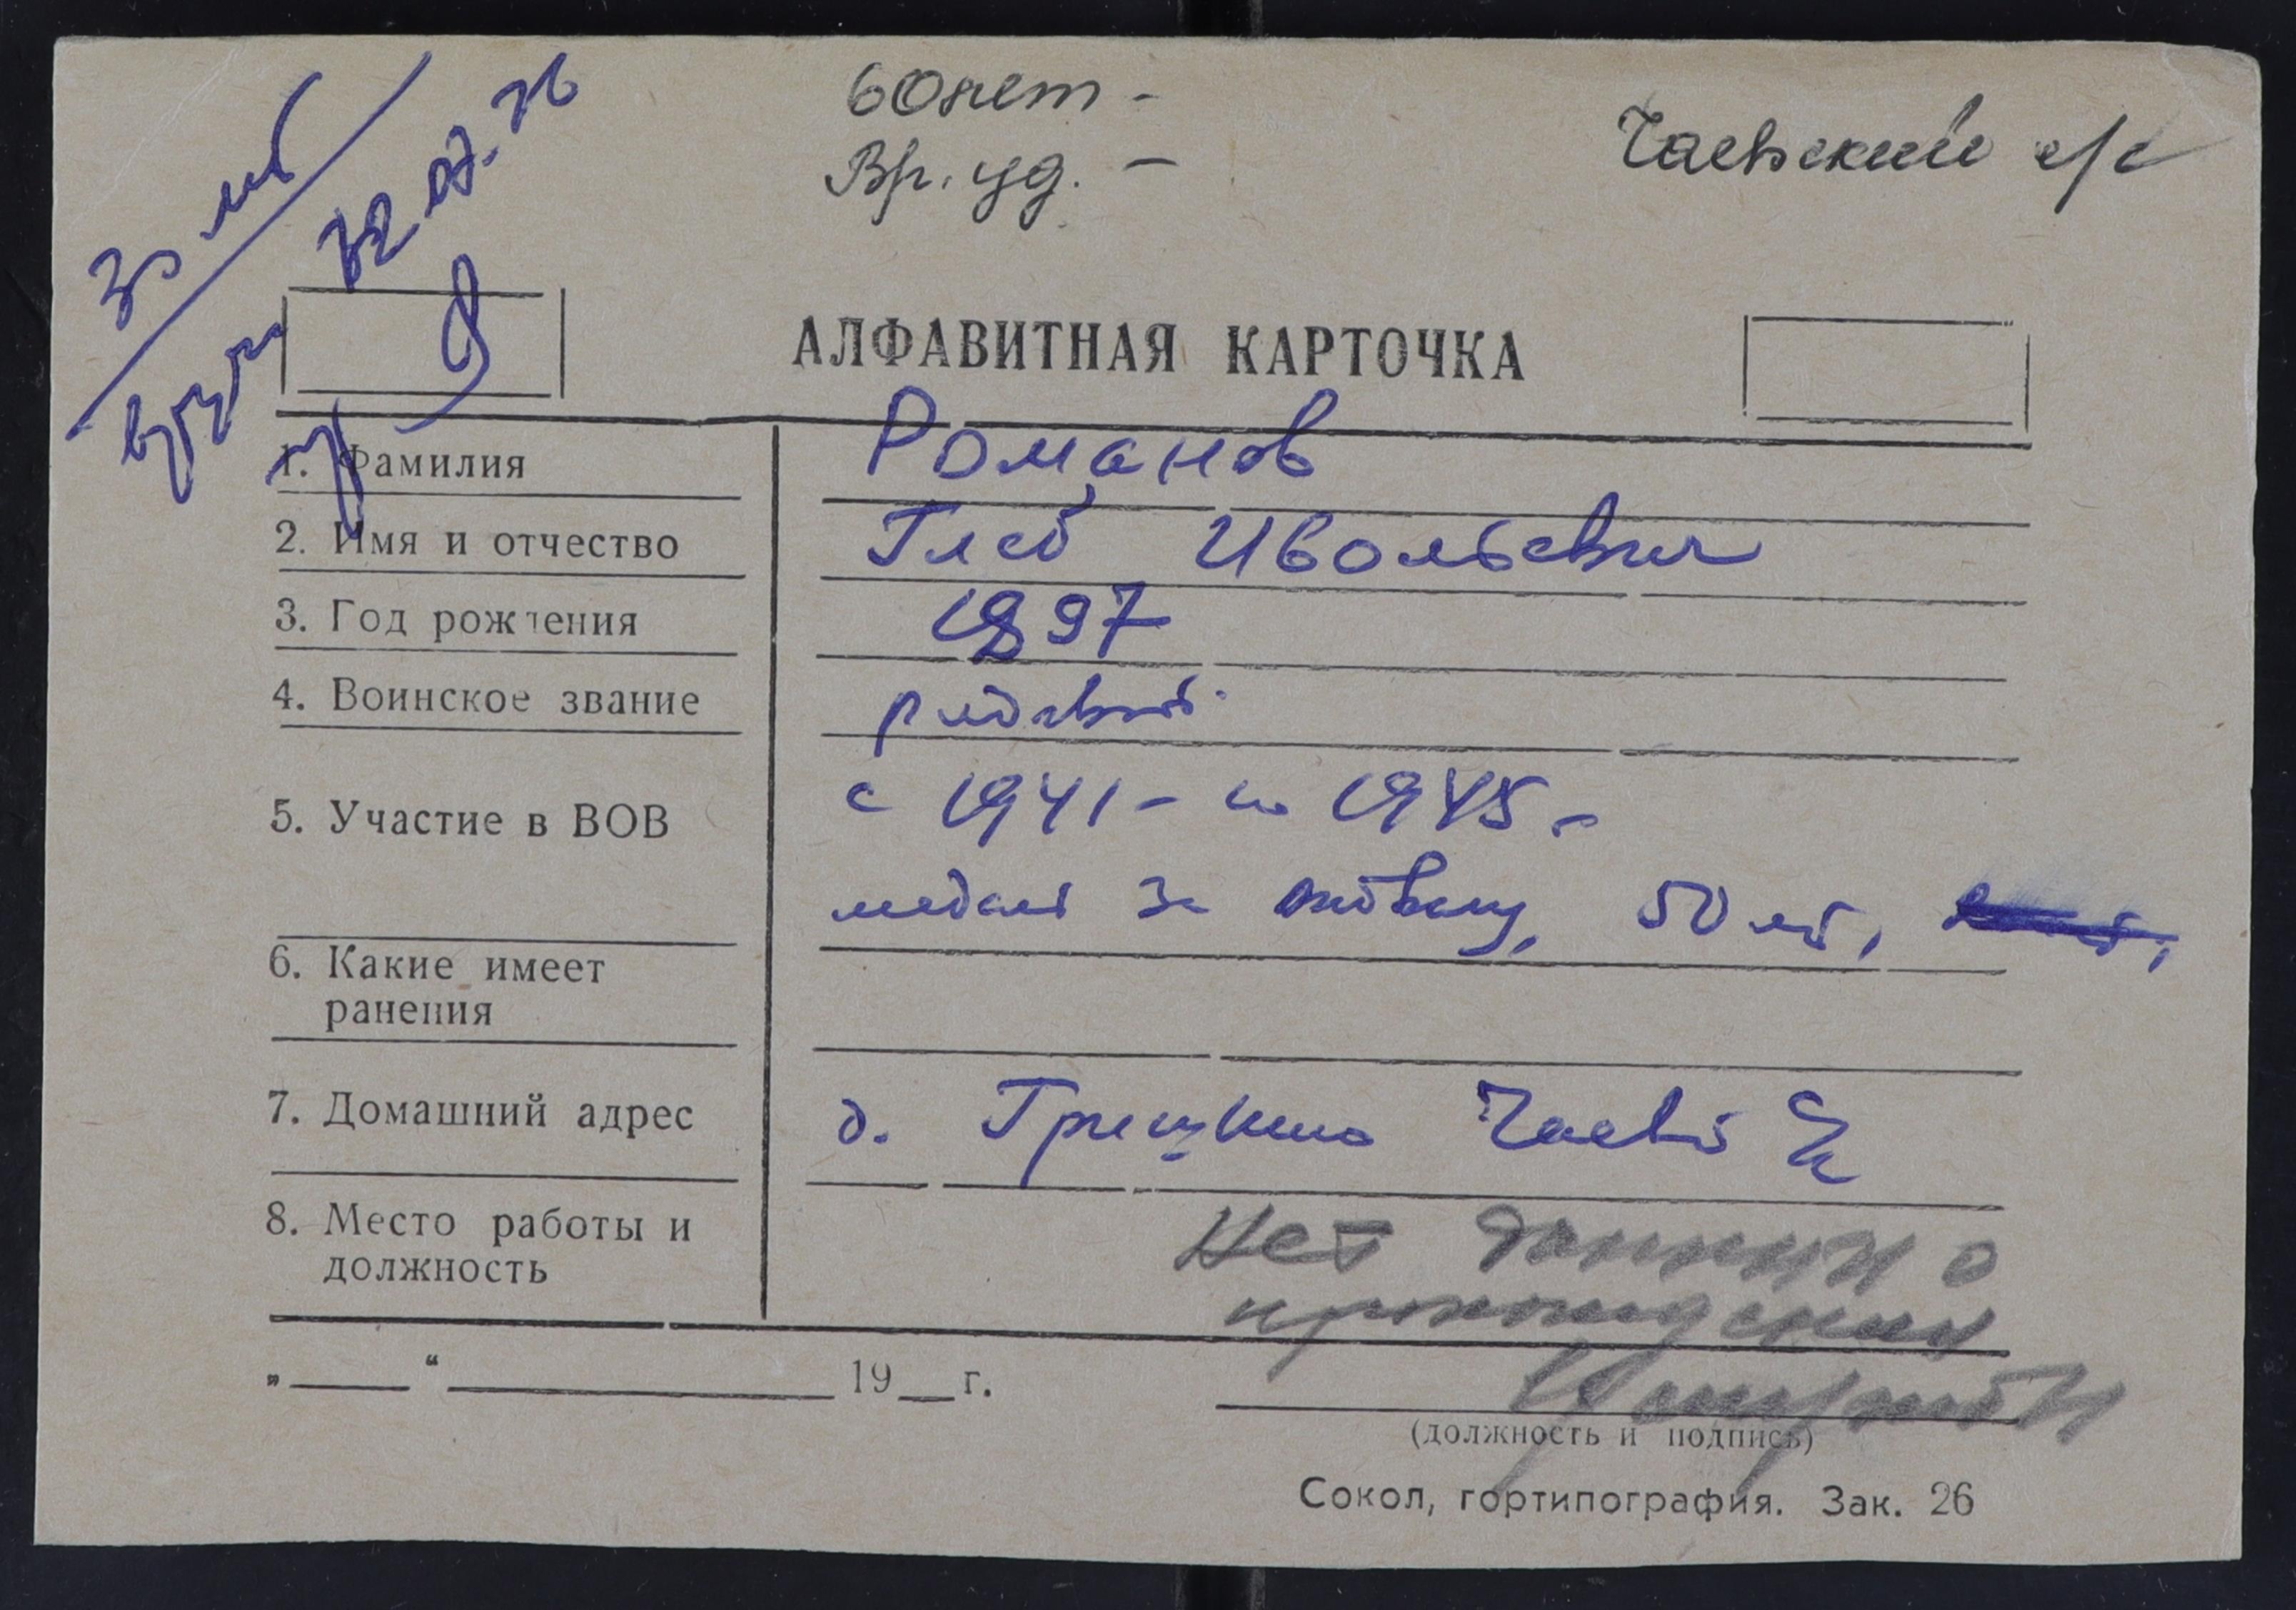 30 лет
22.07.76
60 лет -
Вр. уд. -
Чаевский с/с
АЛФАВИТНАЯ КАРТОЧКА
1. Фамилия Романов
2. Имя и отчество Глеб Ивольевич
3. Год рождения 1897
4. Воинское звание рядовой
5. Участие в ВОВ с 1941 - по 1945 -
медаль За отвагу, 50 лет,
6. Какие имеет
ранения
7. Домашний адрес д. Чаевс
8. Место работы и
должность
Нет данных о
прохождении
„ “ 19 г.
(должность и подпись)
Сокол, гортипография. Зак. 26